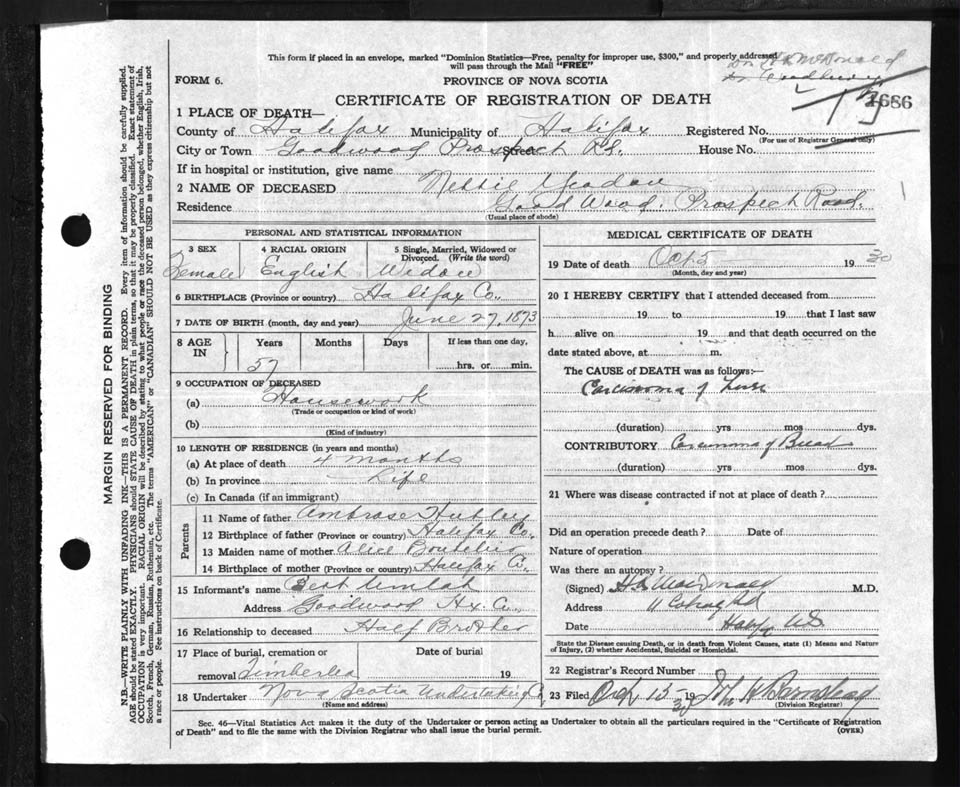 This form if placed in an envelope, marked "Dominion Statistics—Free, penalty for improper use, $300," and properly addressed
will pass through the Mail "FREE"
Dr. McDonald
FORM 6.
PROVINCE OF NOVA SCOTIA
CERTIFICATE OF REGISTRATION OF DEATH
1686
1 PLACE OF DEATH—
County of Halifax Municipality of Halifax Registered No.
(For use of Registrar General only)
City or Town Goodwood Prospect Rd. Street House No.
If in hospital or institution, give name
2 NAME OF DECEASED Nettie Yeadon
Residence Good Wood. Prospect Road.
(Usual place of abode)
PERSONAL AND STATISTICAL INFORMATION
3 SEX Female
4 RACIAL ORIGIN English
5 Single, Married, Widowed or Divorced. (Write the word) Widow
6 BIRTHPLACE (Province or country) Halifax Co.,
7 DATE OF BIRTH (month, day and year) June 27, 1873
8 AGE IN Years Months Days If less than one day,
57 hrs. or min.
9 OCCUPATION OF DECEASED
(a) Housework
(Trade or occupation or kind of work)
(b)
(Kind of industry)
10 LENGTH OF RESIDENCE (in years and months)
(a) At place of death 4 months
(b) In province Life
(c) In Canada (if an immigrant)
Parents
11 Name of father Ambrose Hubley
12 Birthplace of father (Province or country) Halifax Co.,
13 Maiden name of mother Alice Boutelier
14 Birthplace of mother (Province or country) Halifax Co.
15 Informant's name Bert Umlah
Address Goodwood Hx. Co.,
16 Relationship to deceased Half Brother
17 Place of burial, cremation or Date of burial
removal Timberlea 19
18 Undertaker Nova Scotia Undertaking Co
(Name and address)
MEDICAL CERTIFICATE OF DEATH
19 Date of death Oct 5 1930
(Month, day and year)
20 I HEREBY CERTIFY that I attended deceased from
19 to 19 that I last saw
h alive on 19 and that death occurred on the
date stated above, at m.
The CAUSE OF DEATH was as follows:—
Carcinoma of
(duration) yrs mos dys.
CONTRIBUTORY Carcinoma of Breast
(duration) yrs mos dys.
21 Where was disease contracted if not at place of death?
Did an operation precede death? Date of
Nature of operation
Was there an autopsy?
(Signed) MacDonald M.D.
Address 11
Date Halifx NS
State the Disease causing Death, or in death from Violent Causes, state (1) Means and Nature
of Injury, (2) whether Accidental, Suicidal or Homicidal.
22 Registrar's Record Number
23 Filed 13 1930 John H Barnstead
(Division Registrar)
Sec. 46—Vital Statistics Act makes it the duty of the Undertaker or person acting as Undertaker to obtain all the particulars required in the "Certificate of Registration
of Death" and to file the same with the Division Registrar who shall issue the burial permit.
(OVER)
MARGIN RESERVED FOR BINDING
N.B.—WRITE PLAINLY WITH UNFADING INK—THIS IS A PERMANENT RECORD. Every item of information should be carefully supplied.
AGE should be stated EXACTLY. PHYSICIANS should STATE CAUSE OF DEATH in plain terms, so that it may be properly classified. Exact statement of
OCCUPATION is very important. RACIAL ORIGIN will be described by stating to what people or race the deceased person belonged, whether English, Irish,
Scotch, French, German, Russian, Ruthenian, etc. The terms "AMERICAN" or "CANADIAN" SHOULD NOT BE USED as they express citizenship but not
a race or people. See instructions on back of Certificate.